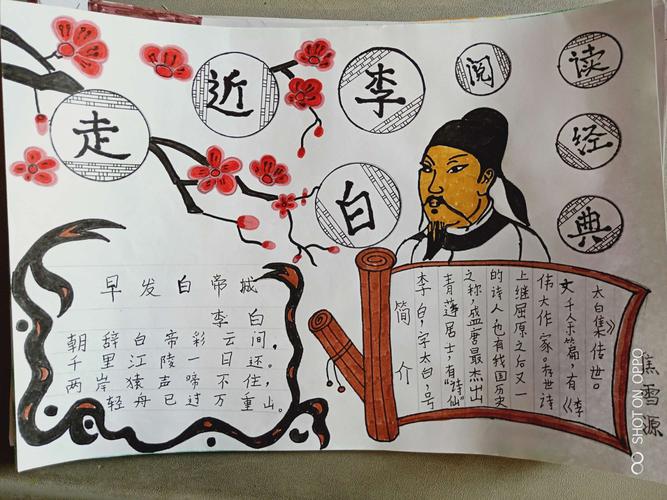 走近李白
阅读经典
早发白帝城
李白
朝辞白帝彩云间,
千里江陵一日还。
两岸猿声啼不住,
轻舟已过万重山。
简介
李白,字太白,号
青莲居士,有“诗仙”
之称,盛唐最杰出
的诗人也有我国历史
上继屈原之后又一
伟大作家。存世诗
文千余篇,有《李
太白集》传世。
焦雪源
SHOT ON OPPO